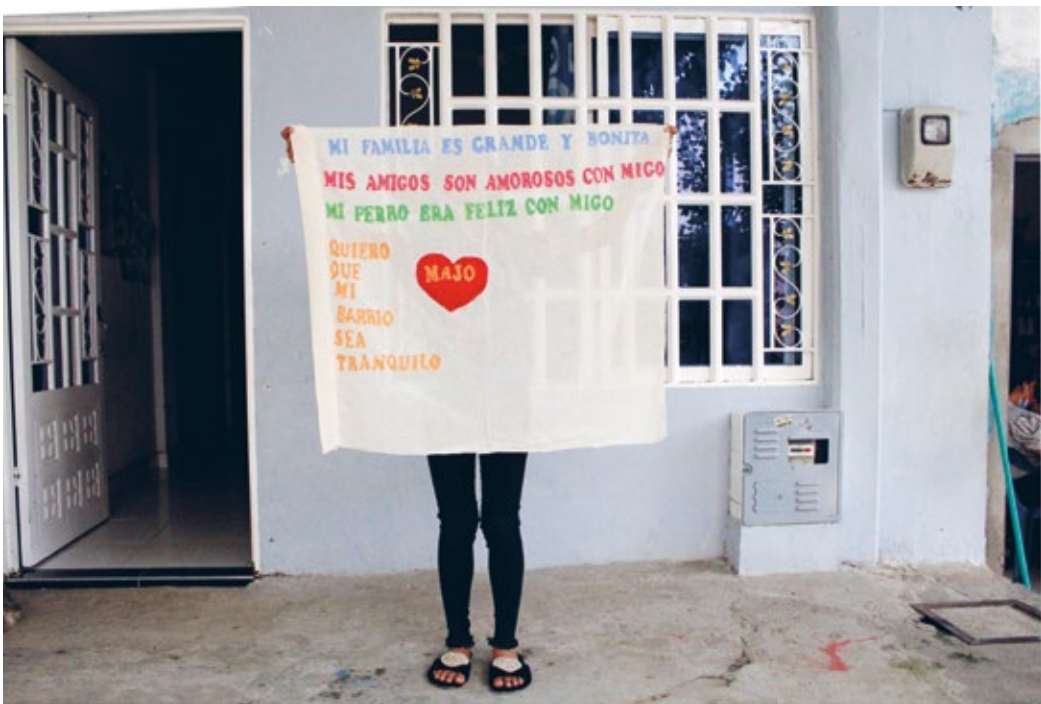 MI FAMILIA ES GRANDE Y BONITA
MIS AMIGOS SON AMOROSOS CON MIGO
MI PERRO ERA FELIZ CON MIGO
QUIERO
QUE
MI
BARRIO
SEA
TRANQUILO
MAJO